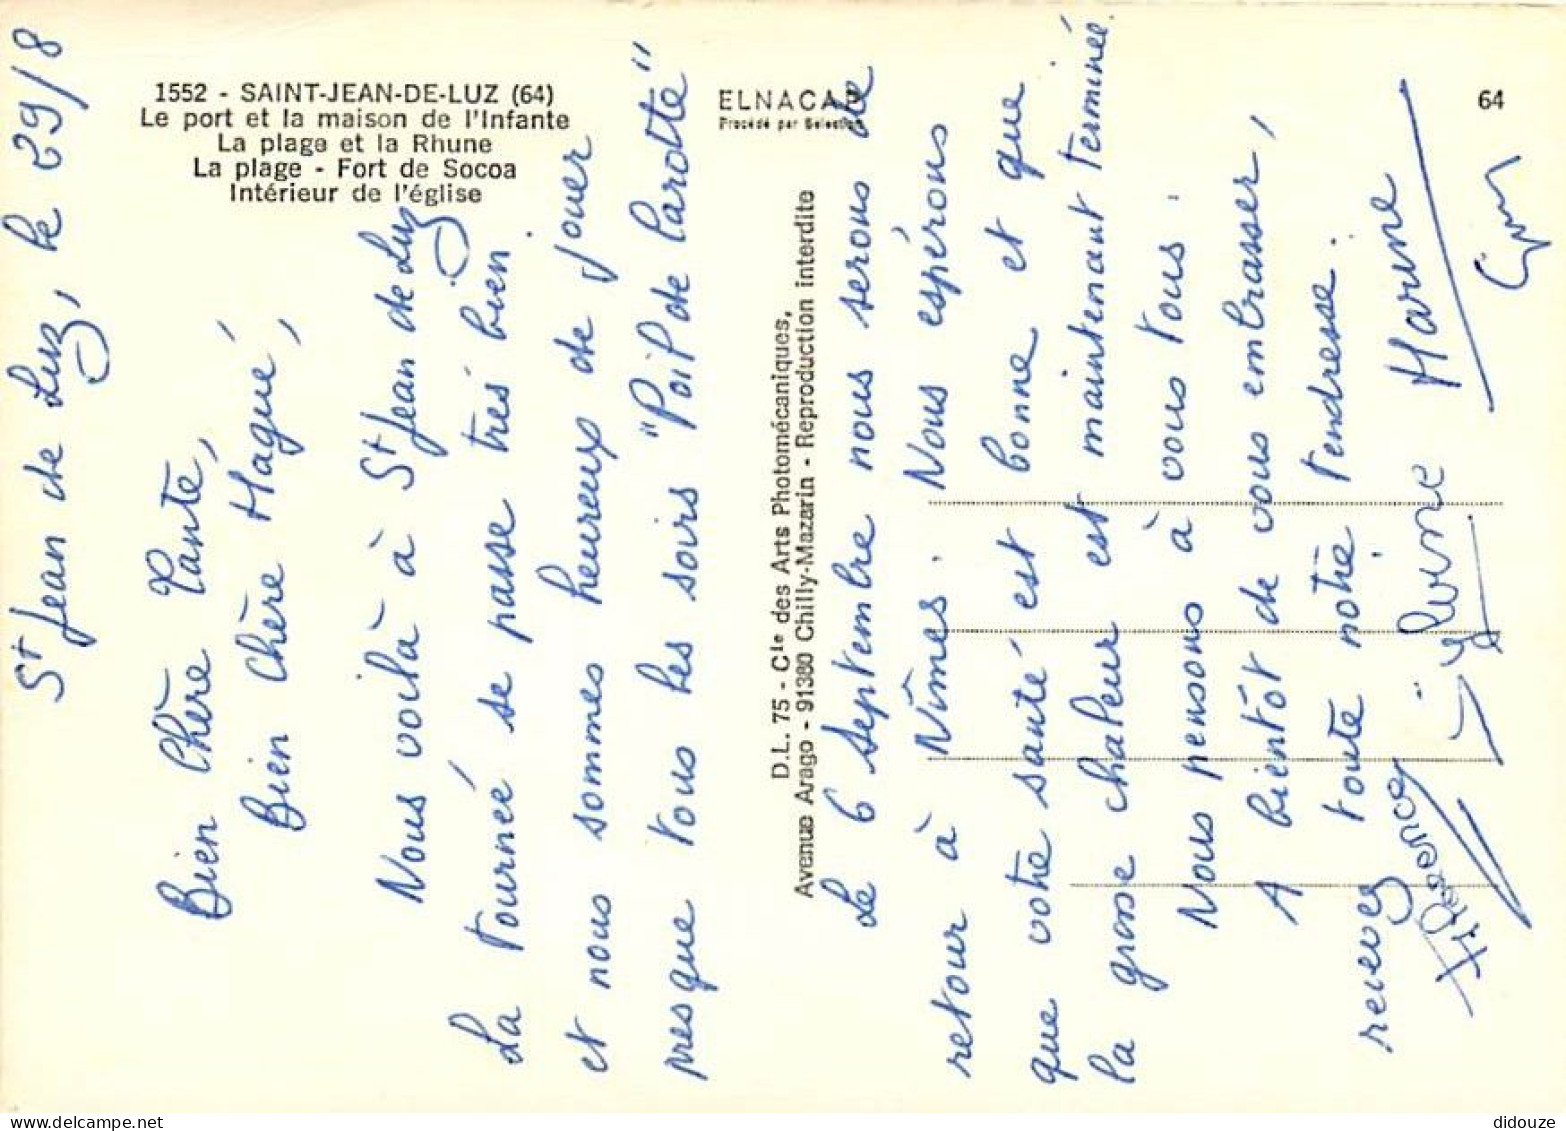 1552 - SAINT-JEAN-DE-LUZ (64)
Le port et la maison de l'Infante
La plage et la Rhune
La plage - Fort de Socoa
Intérieur de l'église
ELNACAP
Procédé par Selection
64
D.L. 75 - Cie des Arts Photomécaniques,
Avenue Arago - 91380 Chilly-Mazarin - Reproduction interdite
St Jean de Luz, le 29/8
Bien Chère Tante,
Bien chère Magué,
Nous voilà à St Jean de Luz
La tournée se passe très bien
et nous sommes heureux de jouer
presque tous les soirs "Poil de Carotte"
Le 6 septembre nous serons de
retour à Nîmes. Nous espérons
que votre santé est bonne et que
la grosse chaleur est maintenant terminée.
Nous pensons à vous tous.
A bientôt de vous embrasser,
recevez toute notre tendresse.
Florence
Marine
didouze